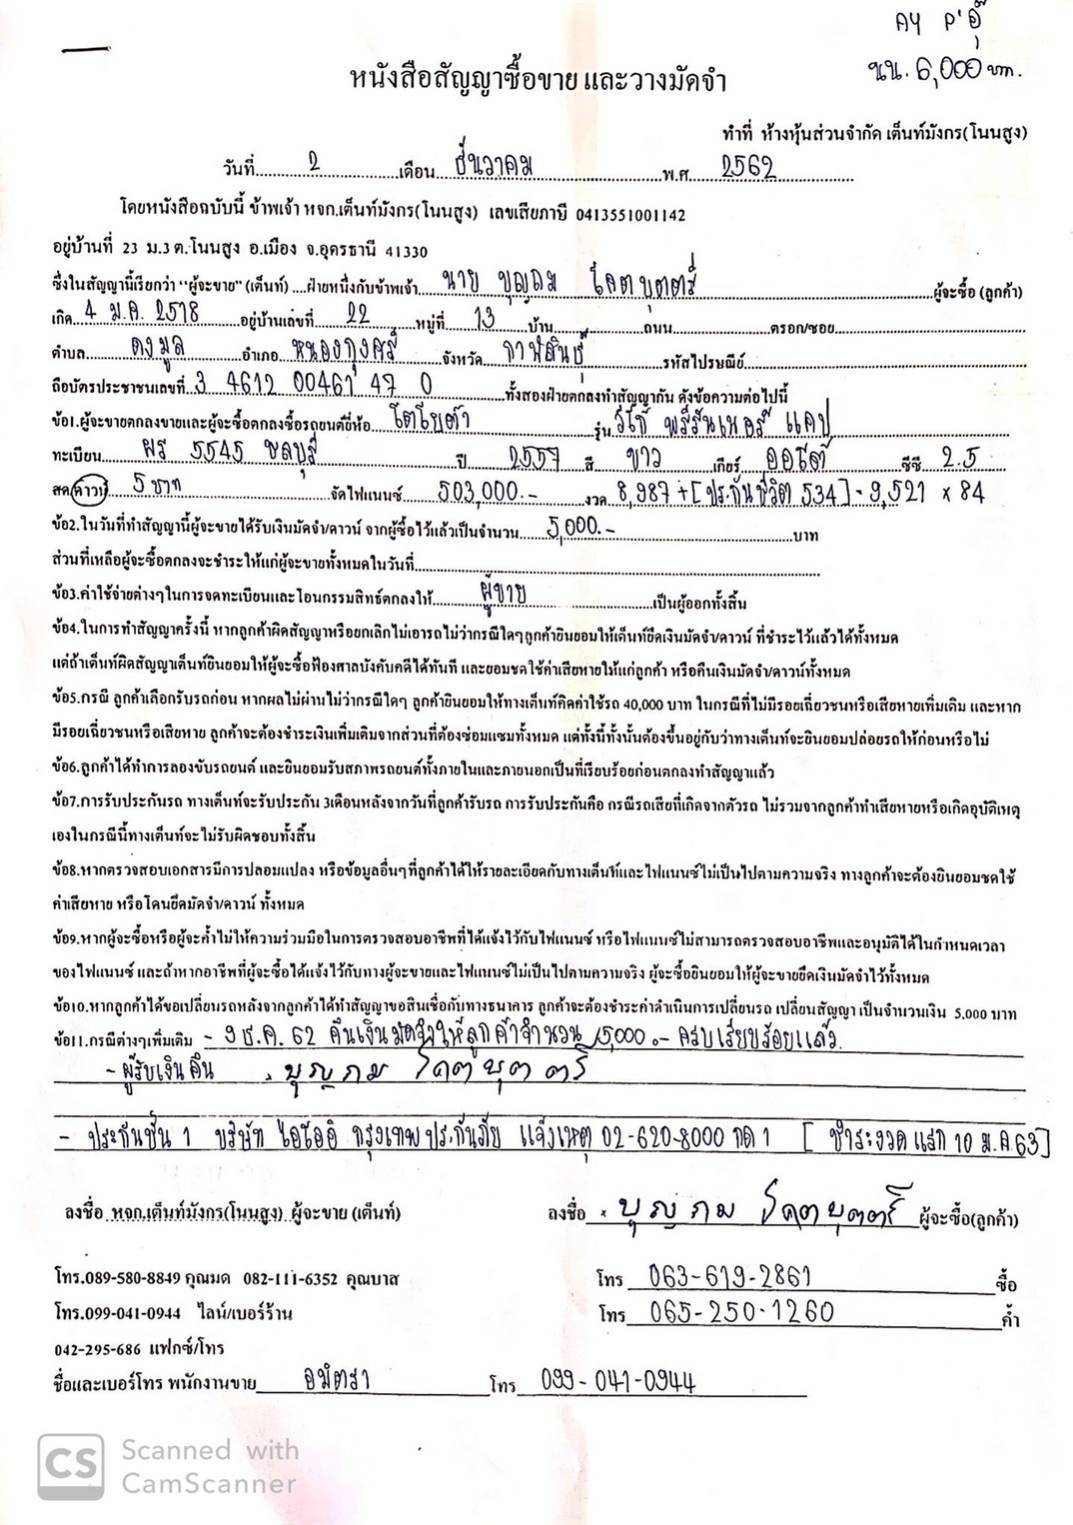 AY P'อุ๊
นน. 6,000 บาท.
หนังสือสัญญาซื้อขาย และวางมัดจำ
ทำที่ ห้างหุ้นส่วนจำกัด เต็นท์มังกร(โนนสูง)
วันที่ 2 เดือน ธันวาคม พ.ศ. 2562
โดยหนังสือฉบับนี้ ข้าพเจ้า หจก.เต็นท์มังกร(โนนสูง) เลขเสียภาษี 0413551001142
อยู่บ้านที่ 23 ม.3 ต.โนนสูง อ.เมือง จ.อุดรธานี 41330
ซึ่งในสัญญานี้เรียกว่า "ผู้จะขาย" (เต็นท์) ....ฝ่ายหนึ่งกับข้าพเจ้า นาย บุญถม โคตบุตตรี ผู้จะซื้อ (ลูกค้า)
เกิด 4 ม.ค. 2518 อยู่บ้านเลขที่ 22 หมู่ที่ 13 บ้าน ถนน ตรอก/ซอย
ตำบล ดงมูล อำเภอ หนองกุงศรี จังหวัด กาฬสินธุ์ รหัสไปรษณีย์
ถือบัตรประชาชนเลขที่ 3 4612 00461 47 0 ทั้งสองฝ่ายตกลงทำสัญญากัน ดังข้อความต่อไปนี้
ข้อ1.ผู้จะขายตกลงขายและผู้จะซื้อตกลงซื้อรถยนต์ยี่ห้อ โตโยต้า รุ่น วีโก้ พรีรันเนอร์ แคป
ทะเบียน ผร 5545 ชลบุรี ปี 2557 สี ขาว เกียร์ ออโต้ ซีซี 2.5
สด/ดาวน์ 5 บาท จัดไฟแนนซ์ 503,000.- งวด 8,987 + [ประกันชีวิต 534] - 9,521 x 84
ข้อ2.ในวันที่ทำสัญญานี้ผู้จะขายได้รับเงินมัดจำ/ดาวน์ จากผู้ซื้อไว้แล้วเป็นจำนวน 5,000.- บาท
ส่วนที่เหลือผู้จะซื้อตกลงจะชำระให้แก่ผู้จะขายทั้งหมดในวันที่
ข้อ3.ค่าใช้จ่ายต่างๆในการจดทะเบียนและโอนกรรมสิทธ์ตกลงให้ ผู้ขาย เป็นผู้ออกทั้งสิ้น
ข้อ4.ในการทำสัญญาครั้งนี้ หากลูกค้าผิดสัญญาหรือยกเลิกไม่เอารถไม่ว่ากรณีใดๆลูกค้ายินยอมให้เต็นท์ยึดเงินมัดจำ/ดาวน์ ที่ชำระไว้แล้วได้ทั้งหมด
แต่ถ้าเต็นท์ผิดสัญญาเต็นท์ยินยอมให้ผู้จะซื้อฟ้องศาลบังคับคดีได้ทันที และยอมชดใช้ค่าเสียหายให้แก่ลูกค้า หรือคืนเงินมัดจำ/ดาวน์ทั้งหมด
ข้อ5.กรณี ลูกค้าเลือกรับรถก่อน หากผลไม่ผ่านไม่ว่ากรณีใดๆ ลูกค้ายินยอมให้ทางเต็นท์คิดค่าใช้รถ 40,000 บาท ในกรณีที่ไม่มีรอยเฉี่ยวชนหรือเสียหายเพิ่มเติม และหาก
มีรอยเฉี่ยวชนหรือเสียหาย ลูกค้าจะต้องชำระเงินเพิ่มเติมจากส่วนที่ต้องซ่อมแซมทั้งหมด แต่ทั้งนี้ทั้งนั้นต้องขึ้นอยู่กับว่าทางเต็นท์จะยินยอมปล่อยรถให้ก่อนหรือไม่
ข้อ6.ลูกค้าได้ทำการลองขับรถยนต์ และยินยอมรับสภาพรถยนต์ทั้งภายในและภายนอกเป็นที่เรียบร้อยก่อนตกลงทำสัญญาแล้ว
ข้อ7.การรับประกันรถ ทางเต็นท์จะรับประกัน 3เดือนหลังจากวันที่ลูกค้ารับรถ การรับประกันคือ กรณีรถเสียที่เกิดจากตัวรถ ไม่รวมจากลูกค้าทำเสียหายหรือเกิดอุบัติเหตุ
เองในกรณีนี้ทางเต็นท์จะไม่รับผิดชอบทั้งสิ้น
ข้อ8.หากตรวจสอบเอกสารมีการปลอมแปลง หรือข้อมูลอื่นๆที่ลูกค้าได้ให้รายละเอียดกับทางเต็นท์และไฟแนนซ์ไม่เป็นไปตามความจริง ทางลูกค้าจะต้องยินยอมชดใช้
ค่าเสียหาย หรือโดนยึดมัดจำ/ดาวน์ ทั้งหมด
ข้อ9.หากผู้จะซื้อหรือผู้จะค้ำไม่ให้ความร่วมมือในการตรวจสอบอาชีพที่ได้แจ้งไว้กับไฟแนนซ์ หรือไฟแนนซ์ไม่สามารถตรวจสอบอาชีพและอนุมัติได้ในกำหนดเวลา
ของไฟแนนซ์ และถ้าหากอาชีพที่ผู้จะซื้อได้แจ้งไว้กับทางผู้จะขายและไฟแนนซ์ไม่เป็นไปตามความจริง ผู้จะซื้อยินยอมให้ผู้จะขายยึดเงินมัดจำไว้ทั้งหมด
ข้อ10.หากลูกค้าได้ขอเปลี่ยนรถหลังจากลูกค้าได้ทำสัญญาขอสินเชื่อกับทางธนาคาร ลูกค้าจะต้องชำระค่าดำเนินการเปลี่ยนรถ เปลี่ยนสัญญา เป็นจำนวนเงิน 5,000 บาท
ข้อ11.กรณีต่างๆเพิ่มเติม - 9 ธ.ค. 62 คืนเงินมัดจำให้ลูกค้าจำนวน 5,000.- ครบเรียบร้อยแล้ว.
- ผู้รับเงินคืน บุญถม โคตบุตตรี
- ประกันชั้น 1 บริษัท ไอโออิ กรุงเทพประกันภัย แจ้งเหตุ 02-620-8000 กด 1 [ ชำระงวดแรก 10 ม.ค 63]
ลงชื่อ หจก.เต็นท์มังกร(โนนสูง) ผู้จะขาย (เต็นท์) ลงชื่อ บุญถม โคตบุตตรี ผู้จะซื้อ(ลูกค้า)
โทร.089-580-8849 คุณมด 082-111-6352 คุณบาส โทร 063-619-2861 ซื้อ
โทร.099-041-0944 ไลน์/เบอร์ร้าน โทร 065-250-1260 ค้ำ
042-295-686 แฟกซ์/โทร
ชื่อและเบอร์โทร พนักงานขาย อมิตรา โทร 099-041-0944
CS Scanned with
CamScanner